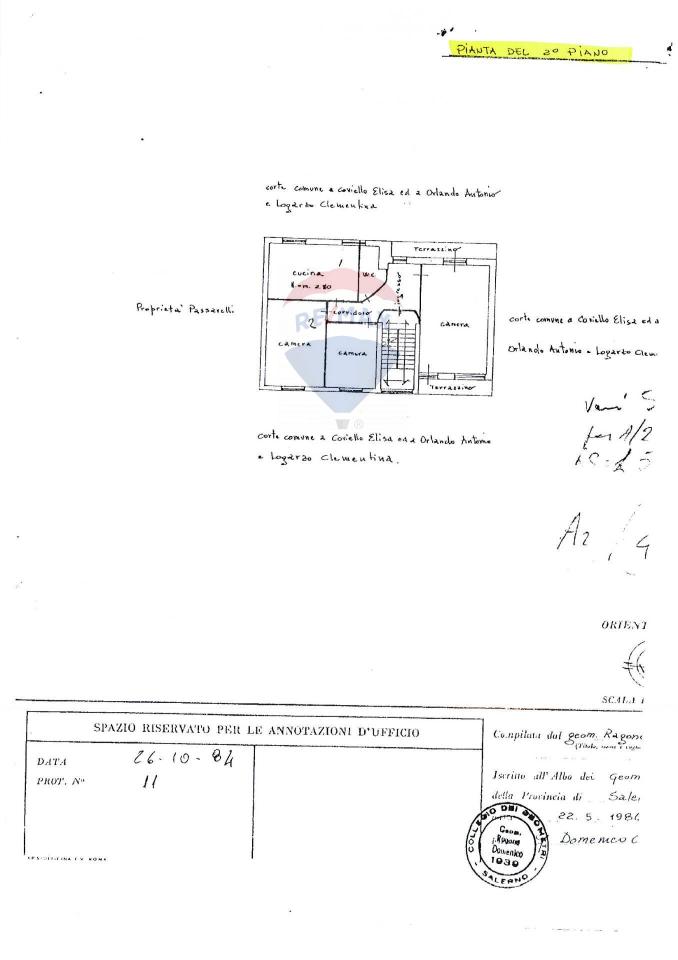 PIANTA DEL 2º PIANO
corte comune a Coviello Elisa ed a Orlando Antonio
e Logarzo Clementina
Terrazzino
cucina
H. m. 2.80
1
wc
ingresso
Proprieta' Passarelli
corridoio
RE/MAX
2
camera
camera
camera
corte comune a Coviello Elisa ed a
Orlando Antonio - Logarzo Clem
Terrazzino
corte comune a Coviello Elisa ed a Orlando Antonio
e Logarzo Clementina.
Vani 5
per A/2
A2 / 4
ORIENT
SCALA 1
SPAZIO RISERVATO PER LE ANNOTAZIONI D'UFFICIO
DATA 26-10-84
PROT. Nº 11
Compilata dal geom. Ragone
(Titolo, nome e cogn
Iscritto all'Albo dei Geom
della Provincia di Saler
22.5.198
Domenico
COLLEGIO DEI GEOMETRI
Geom.
Ragone
Domenico
1939
SALERNO